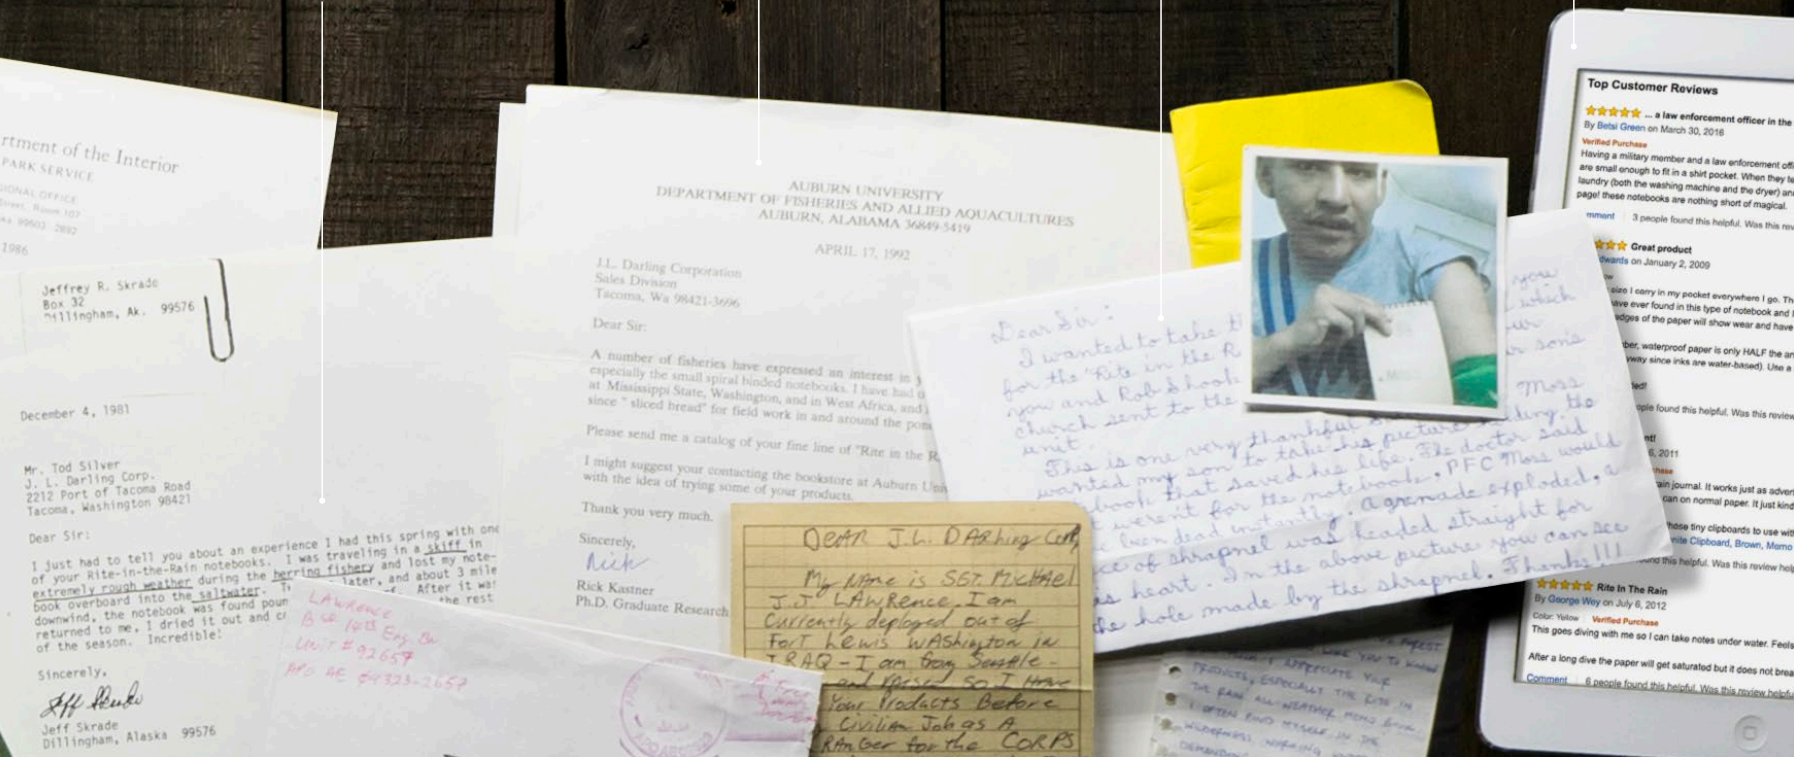 rtment of the Interior
PARK SERVICE
IONAL OFFICE
Street, Room 107
99503-2892
1986
Jeffrey R. Skrade
Box 32
Dillingham, Ak. 99576
December 4, 1981
Mr. Tod Silver
J. L. Darling Corp.
2212 Port of Tacoma Road
Tacoma, Washington 98421
Dear Sir:
I just had to tell you about an experience I had this spring with one
of your Rite-in-the-Rain notebooks. I was traveling in a skiff in
extremely rough weather during the herring fishery and lost my note-
book overboard into the saltwater. later, and about 3 mile
downwind, the notebook was found After it was
returned to me, I dried it out and the rest
of the season. Incredible!
Sincerely,
Jeff Skrade
Jeff Skrade
Dillingham, Alaska 99576
LAWRENCE
14th Eng. Bn
UNIT # 92657
APO AE 09323-2657
AUBURN UNIVERSITY
DEPARTMENT OF FISHERIES AND ALLIED AQUACULTURES
AUBURN, ALABAMA 36849-5419
APRIL 17, 1992
J.L. Darling Corporation
Sales Division
Tacoma, Wa 98421-3696
Dear Sir:
A number of fisheries have expressed an interest in
especially the small spiral binded notebooks. I have had
at Mississippi State, Washington, and in West Africa, and
since " sliced bread" for field work in and around the
Please send me a catalog of your fine line of "Rite in the R
I might suggest your contacting the bookstore at Auburn
with the idea of trying some of your products.
Thank you very much.
Sincerely,
Rick
Rick Kastner
Ph.D. Graduate Research
DEAR J.L. DARling Corp,
My NAme is SGT. MicHAel
J.J. LAwRence. I am
Currently deployed out of
FoRT Lewis WAshington in
IRAQ - I am from Seattle -
and Raised so I Have
Your Products Before
Civilian Job as A
RAnGer for the CORPS
Dear Sir:
I wanted to take
for the "Rite in the R
you and Rob Shook
church sent to the
unit.
you
which
our
son's
Moss
This is one very thankful
wanted my son to take his picture holding the
book that saved his life. The doctor said
weren't for the notebook, PFC Moss would
been dead instantly. A grenade exploded, a
of shrapnel was headed straight for
heart. In the above picture you can see
the hole made by the shrapnel. Thanks!!!
APPRECIATE YOUR
PRODUCTS, ESPECIALLY THE RITE IN
THE RAIN ALL-WEATHER MEMO BOOK.
I OFTEN FIND MYSELF IN THE
WILDERNESS WORKING
DEMANDING
Top Customer Reviews
... a law enforcement officer in the
By Betsi Green on March 30, 2016
Verified Purchase
Having a military member and a law enforcement
are small enough to fit in a shirt pocket. When they
laundry (both the washing machine and the dryer)
page! these notebooks are nothing short of magical.
mment 3 people found this helpful. Was this
Great product
dwards on January 2, 2009
size I carry in my pocket everywhere I go.
have ever found in this type of notebook and
edges of the paper will show wear and have
ber, waterproof paper is only HALF the
yway since inks are water-based). Use a
ded!
ople found this helpful. Was this review
nt!
6, 2011
hase
rain journal. It works just as
can on normal paper. It just kind
those tiny clipboards to use
nite Clipboard, Brown, Memo
found this helpful. Was this review
Rite In The Rain
By George Woy on July 6, 2012
Color: Yellow Verified Purchase
This goes diving with me so I can take notes under water. Feels
After a long dive the paper will get saturated but it does not
Comment 6 people found this helpful. Was this review